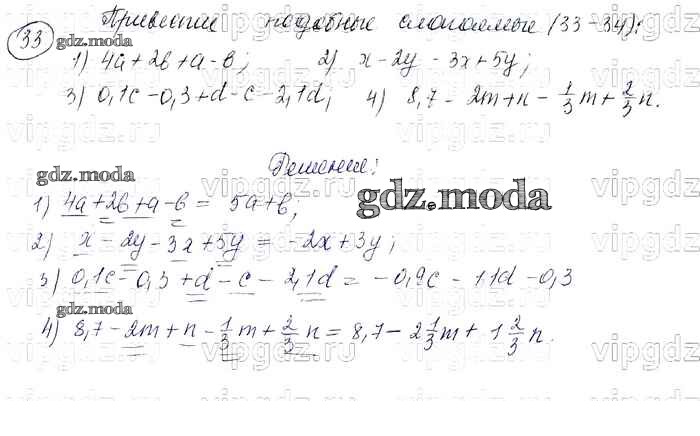 33 Привести подобные слагаемые (33-34):
gdz.moda
1) 4a + 2b + a - b; 2) x - 2y - 3x + 5y;
3) 0,1c - 0,3 + d - c - 2,1d; 4) 8,7 - 2m + n - 1/3 m + 2/3 n.
Решение:
gdz.moda
1) 4a + 2b + a - b = 5a + b;
gdz.moda
2) x - 2y - 3x + 5y = -2x + 3y;
3) 0,1c - 0,3 + d - c - 2,1d = -0,9c - 1,1d - 0,3
gdz.moda
4) 8,7 - 2m + n - 1/3 m + 2/3 n = 8,7 - 2 1/3 m + 1 2/3 n.
vipgdz.ru